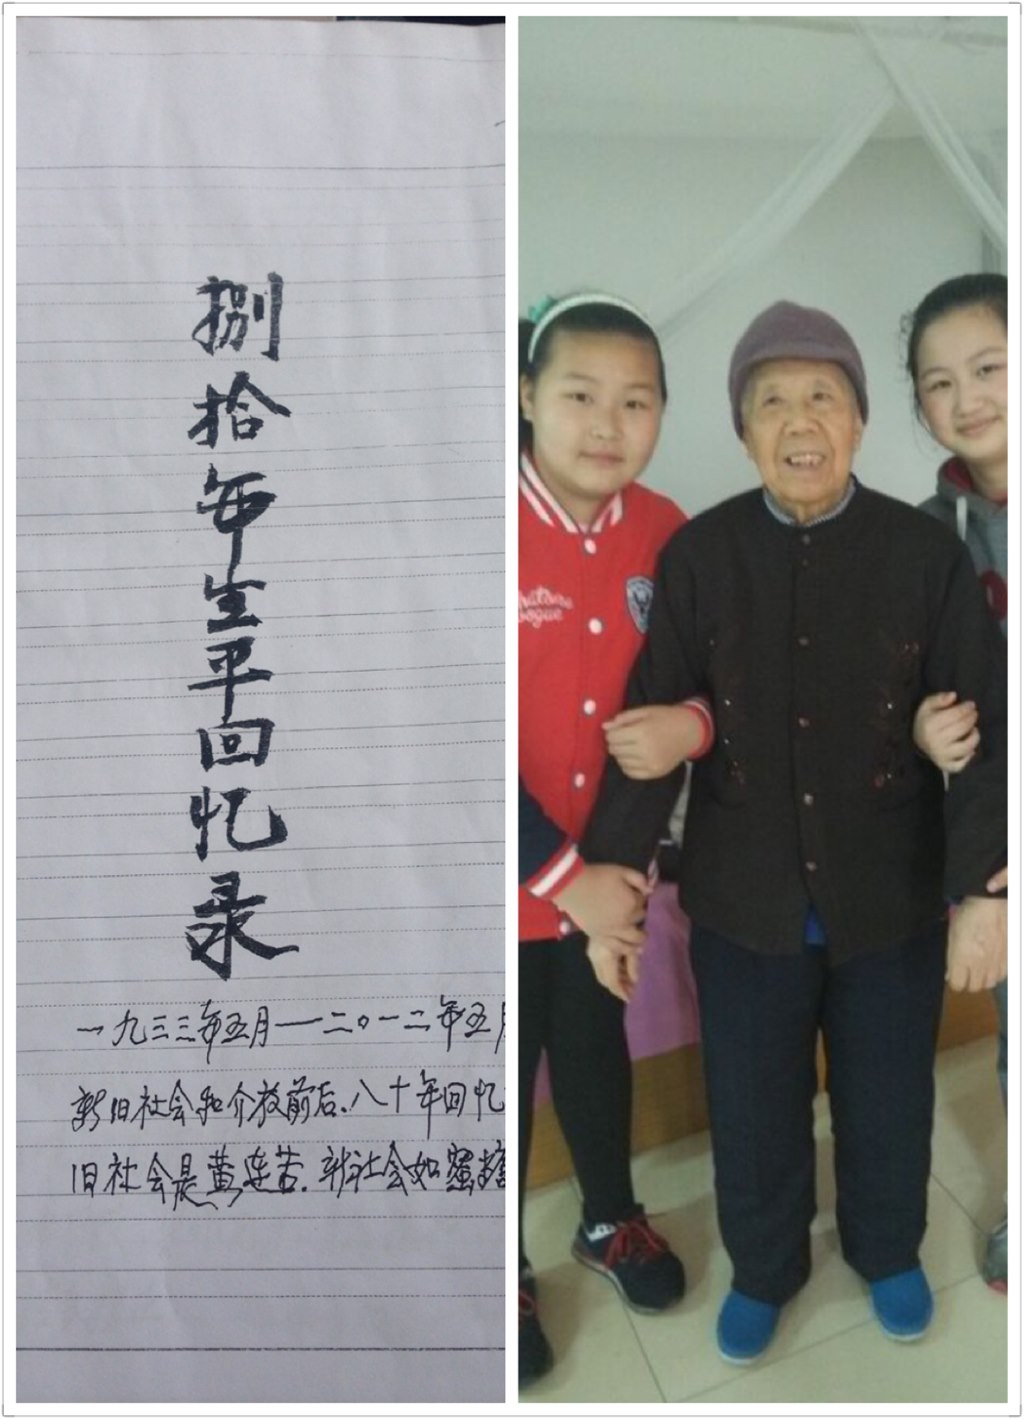 捌拾年生平回忆录
一九三三年五月——二〇一二年五月
新旧社会和介放前后、八十年回忆
旧社会是黄连苦、新社会如蜜糖